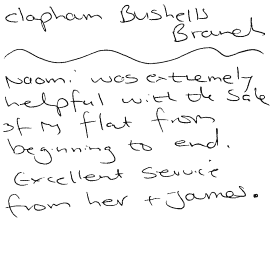 Clapham Bushells
Branch
Naomi was extremely
helpful with the Sale
of my flat from
beginning to end.
Excellent service
from her + James.